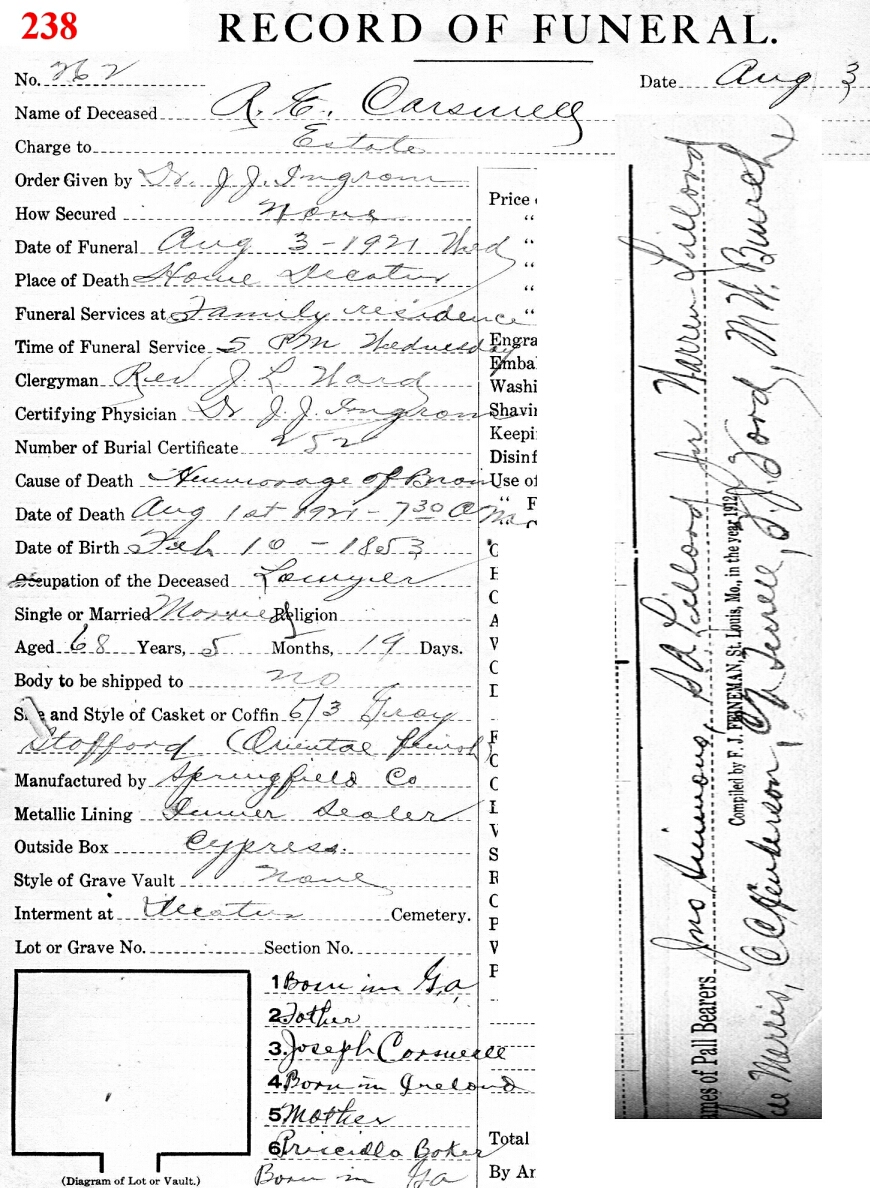 238
RECORD OF FUNERAL.
No. 262
Date Aug 3
Name of Deceased A. E. Carswell
Charge to Estate
Order Given by Dr. J. J. Ingram
How Secured None
Date of Funeral Aug 3 - 1921 Wed
Place of Death Home Decatur
Funeral Services at Family residence
Time of Funeral Service 5 PM Wednesday
Clergyman Rev J. L. Ward
Certifying Physician Dr J. J. Ingram
Number of Burial Certificate 252
Cause of Death Hemmorage of Brain
Date of Death Aug 1st 1921 - 7 30 a m
Date of Birth Feb 10 - 1853
Occupation of the Deceased Lawyer
Single or Married Married Religion
Aged 68 Years, 5 Months, 19 Days.
Body to be shipped to no
and Style of Casket or Coffin 6/3 Gray
Stafford (Oriental finish)
Manufactured by Springfield Co
Metallic Lining Inner Sealer
Outside Box Cypress.
Style of Grave Vault None
Interment at Decatur Cemetery.
Lot or Grave No. Section No.
1 Born in Ga,
2. Father
3. Joseph Carswell
4. Born in Ireland
5 Mother
6. Priscilla Baker
Born in Ga
(Diagram of Lot or Vault.)
Price
"
"
"
"
"
Engra
Emba
Washi
Shavin
Keepi
Disinf
Use of
" F
Total
By Am
ames of Pall Bearers Jno Simmons, Ed Lillard Jr Warren Lillard
Compiled by F. J. FEINEMAN, St. Louis, Mo., in the year 1912
Morris, C C Henderson, Terrell, Ford, M. W. Burch,